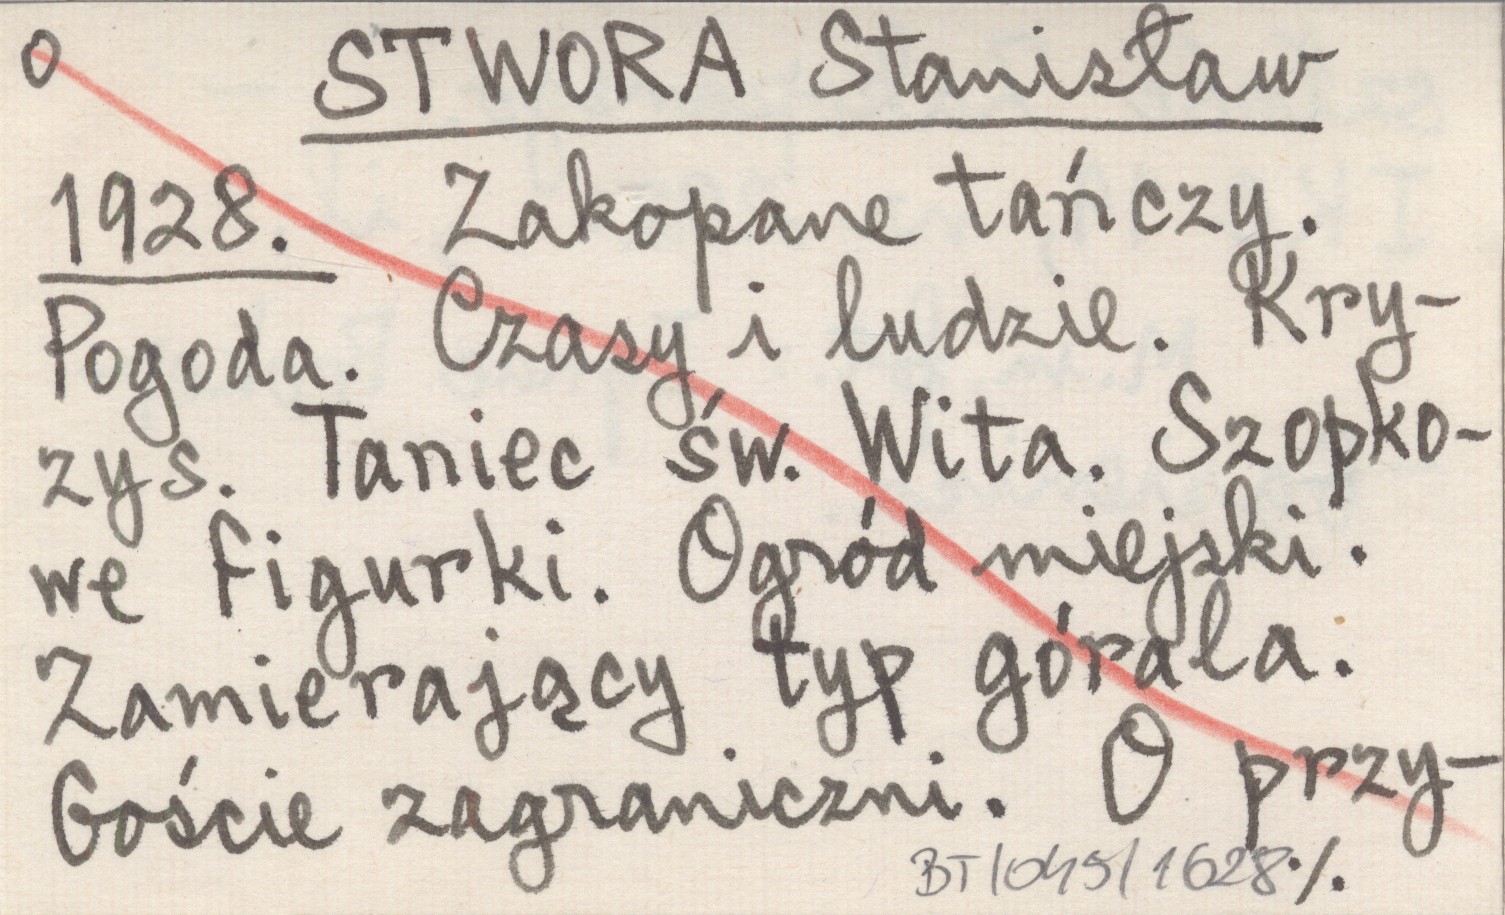 O STWORA Stanisław
1928. Zakopane tańczy.
Pogoda. Czasy i ludzie. Kry-
zys. Taniec św. Wita. Szopko-
we figurki. Ogród miejski.
Zamierający typ górala.
Goście zagraniczni. O przy-
BT/045/1628 ./.